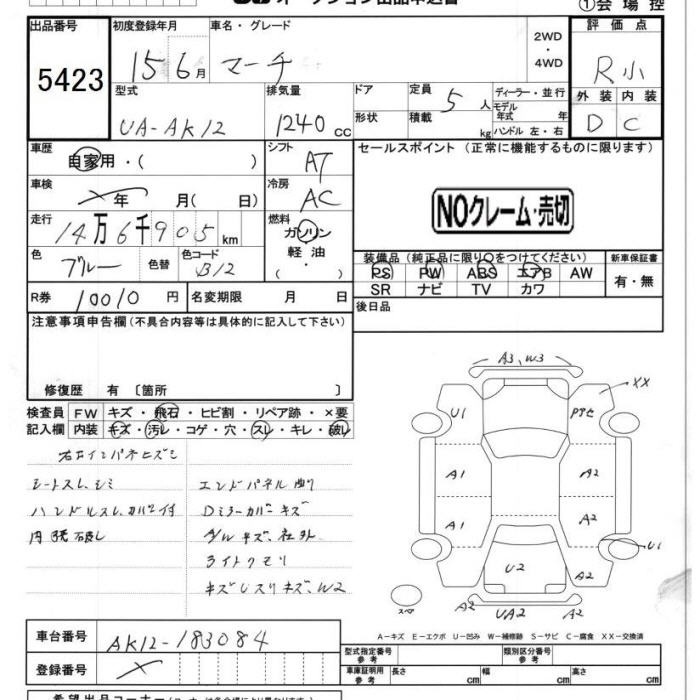 オークション出品申込書
①会場控
出品番号
5423
初度登録年月
15 6月
車名・グレード
マーチ
2WD
・
4WD
評価点
R小
型式
UA-AK12
排気量
1240 cc
ドア
形状
定員
5人
積載
kg
ディーラー・並行
モデル
年式 年
ハンドル 左・右
外装 内装
D C
車歴
自家用・( )
シフト
AT
セールスポイント (正常に機能するものに限ります)
車検
年 月( 日)
冷房
AC
NOクレーム・売切
走行
14万6千905km
燃料
ガソリン
軽油
・
色
ブルー
色替
色コード
B12
装備品 (純正品に限り○をつけてください)
PS PW ABS エアB AW
SR ナビ TV カワ
新車保証書
有・無
R券
10010円
名変期限 月 日
後日品
注意事項申告欄 (不具合内容等は具体的に記入して下さい)
修復歴 有 〔箇所 〕
検査員
記入欄
FW キズ・飛石・ヒビ割・リペア跡・×要
内装 キズ・汚レ・コゲ・穴・スレ・キレ・破レ
右右インパネヒズミ
シートスレ、シミ
ハンドルスレ、カバー付
内張破レ
エンドパネル曲り
Dミラーカバーキズ
A/Wキズ、社外
ライトクモリ
キズUスリキズ、W2
A3、W3
XX
U1
A1
A2
A1
A2
U1
U2
A2
A2
UA2
A2
スペア
A-キズ E-エクボ U-凹み W-補修跡 S-サビ C-腐食 XX-交換済
車台番号
AK12-183084
登録番号
型式指定番号
参考
類別区分番号
参考
車庫証明用
参考
長さ cm
幅 cm
高さ cm
希望出品コーナー